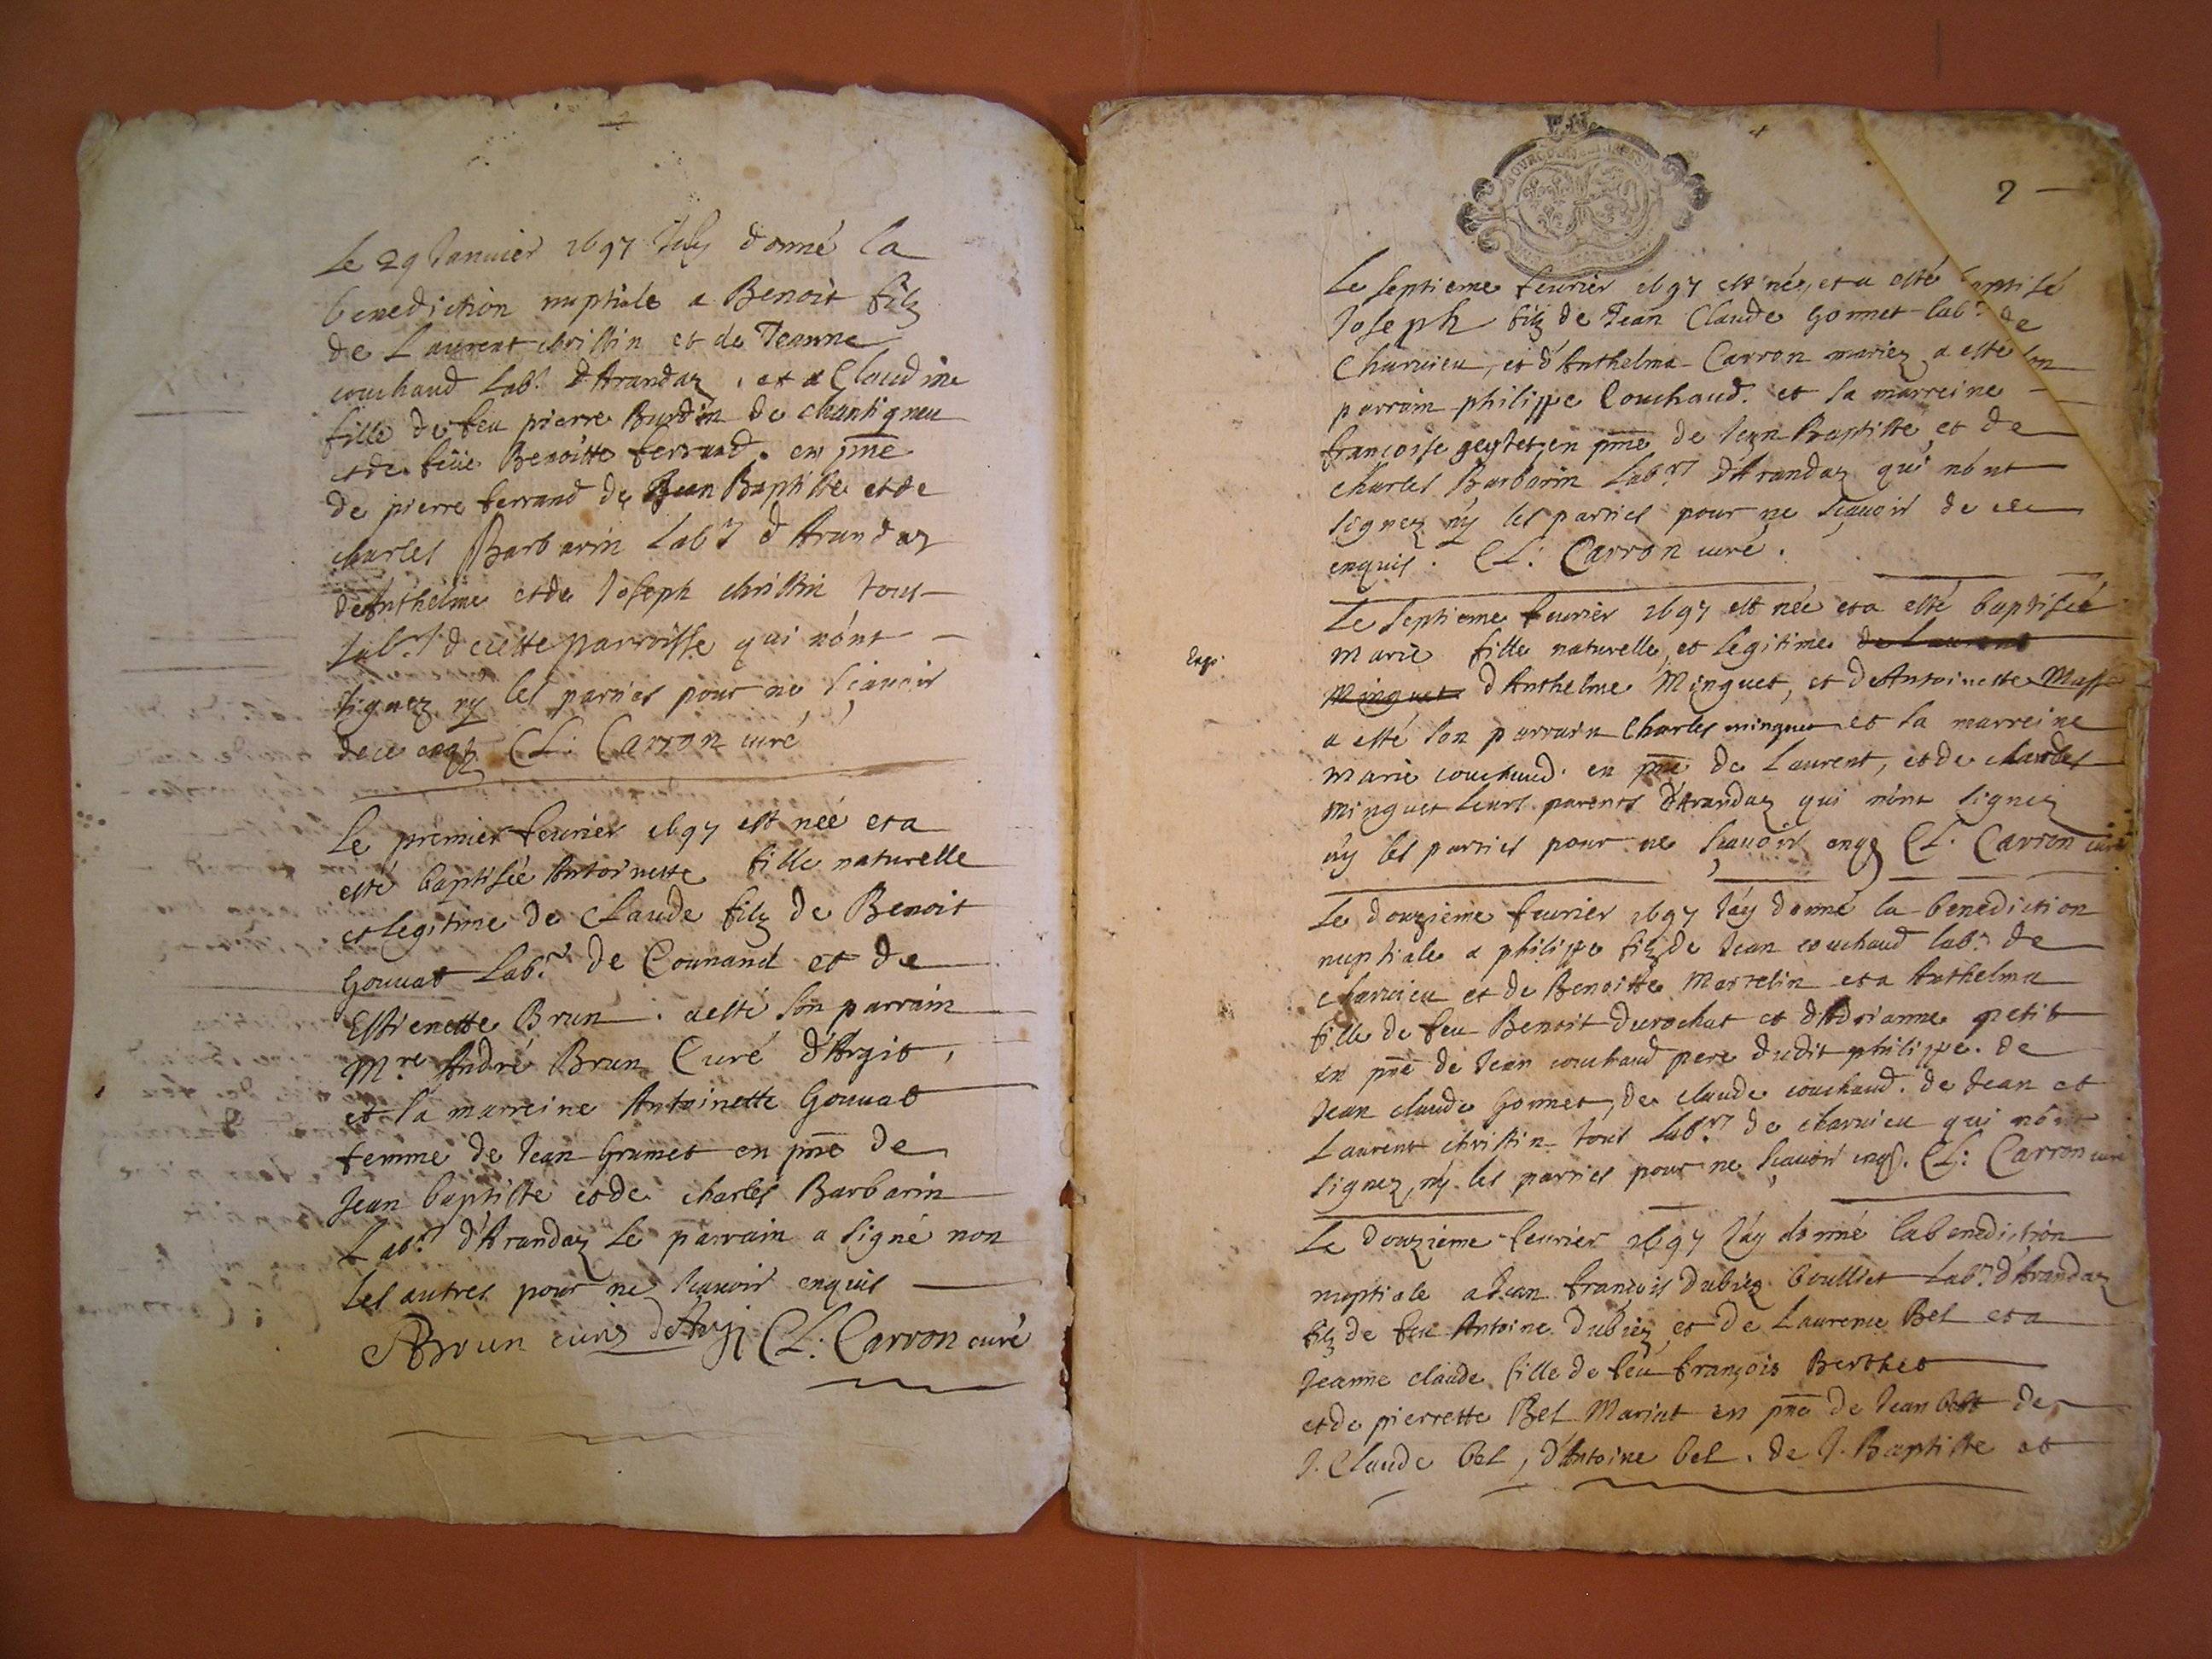 Le 29 Janvier 1697 J'ay donné la
benediction nuptiale a Benoit filz
de Laurent christin et de Jeanne
couchaud Lab.r d'Arandaz, et a Claudine
fille de feu pierre Burdin de chantigneu
et de feüe Benoitte ferrand. en pn̄ce
de pierre ferrand de Jean Baptiste et de
charles Barbarin Lab.rs d'Arandaz
de Anthelme et de Joseph christin tous
Lab.rs de cette parroisse qui n'ont
signez ny les parties pour ne sçavoir
de ce enqs CL: Carron curé
Le premier fevrier 1697 est née et a
esté baptisée Antoinette fille naturelle
et legitime de Claude filz de Benoit
Gouvat Lab.r de Counand et de
Estienette Brun. a esté son parrain
M.re André Brun Curé d'Argit,
et la marreine Antoinette Gouvat
femme de Jean Grumet en pn̄ce de
Jean baptiste et de charles Barbarin
Lab.rs d'Arandaz le parrain a signé non
les autres pour ne scavoir enquis
ABrun curé d'Argi CL: Carron curé
2
Le septieme fevrier 1697 est né, et a esté baptisé
Joseph filz de Jean Claude Gonnet lab.r de
Charvieu, et d'Anthelma Carron mariez a esté son
parrain philippe Couchaud. et la marreine
francoise geytet, en pn̄ce de Jean Baptiste et de
charles Barbarin Lab.rs d'Arandaz qui n'ont
signez ny les parties pour ne sçavoir de ce
enquis. CL: Carron curé.
Le septieme fevrier 1697 est née et a esté baptisée
Marie fille naturelle, et legitime de Laurent
Minguet d'Anthelme Minguet, et de Antoinette Masse
a esté son parrain Charles minguet et la marreine
Marie couchaud. en pn̄ce de Laurent, et de charles
Minguet leurs parents d'Arandaz qui n'ont signez
ny les parties pour ne sçavoir enqs CL: Carron curé
Le douzieme fevrier 1697 J'ay donné la benediction
nuptiale a philippe filz de Jean couchaud lab.r de
charvieu et de Benoitte Martelin et a Anthelma
fille de feu Benoit durochat et d'Adrianne petit
en pn̄ce de Jean couchaud pere dudit philippe. de
Jean claude Gonnet, de claude couchaud. de Jean et
Laurent christin tous Lab.rs de charvieu qui n'ont
signez, ny les parties pour ne sçavoir enqs. CL: Carron curé
Le douzieme fevrier 1697 J'ay donné la benediction
nuptiale a Jean françois Dubiez boulliet Lab.r d'Arandaz
filz de feu Antoine Dubiez et de Laurence Bel et a
Jeanne claude fille de feu françois Berthet
et de pierrette Bel Mariat en pn̄ce de Jean bel de
J. Claude bel, d'Antoine bel. de J. Baptiste et